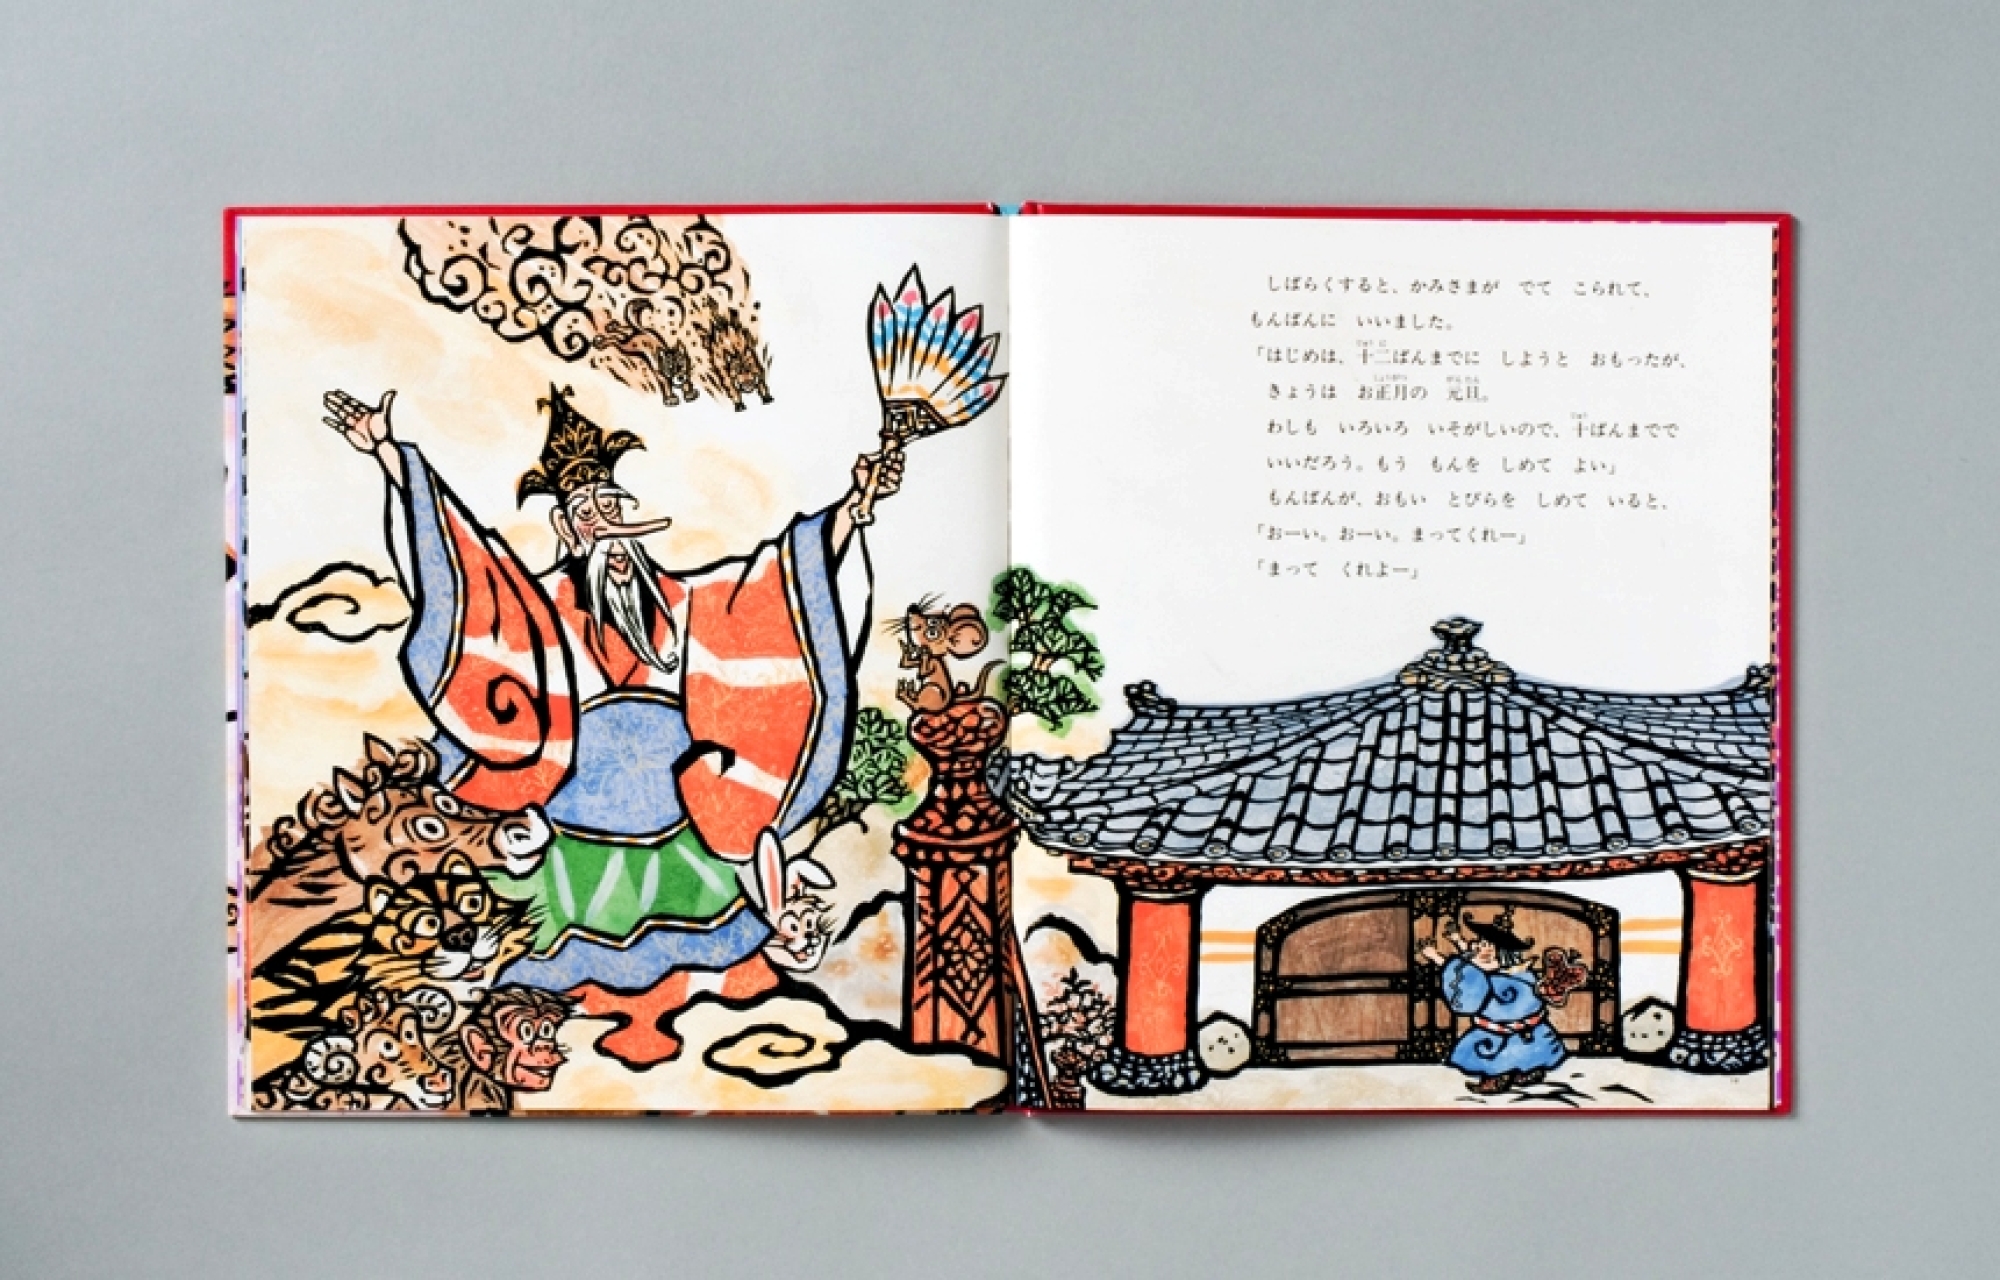 しばらくすると、かみさまが　でて　こられて、
もんばんに　いいました。
「はじめは、十二ばんまでに　しようと　おもったが、
きょうは　お正月の　元旦。
わしも　いろいろ　いそがしいので、十ばんまでで
いいだろう。もう　もんを　しめて　よい」
もんばんが、おもい　とびらを　しめて　いると、
「おーい。おーい。まってくれー」
「まって　くれよー」